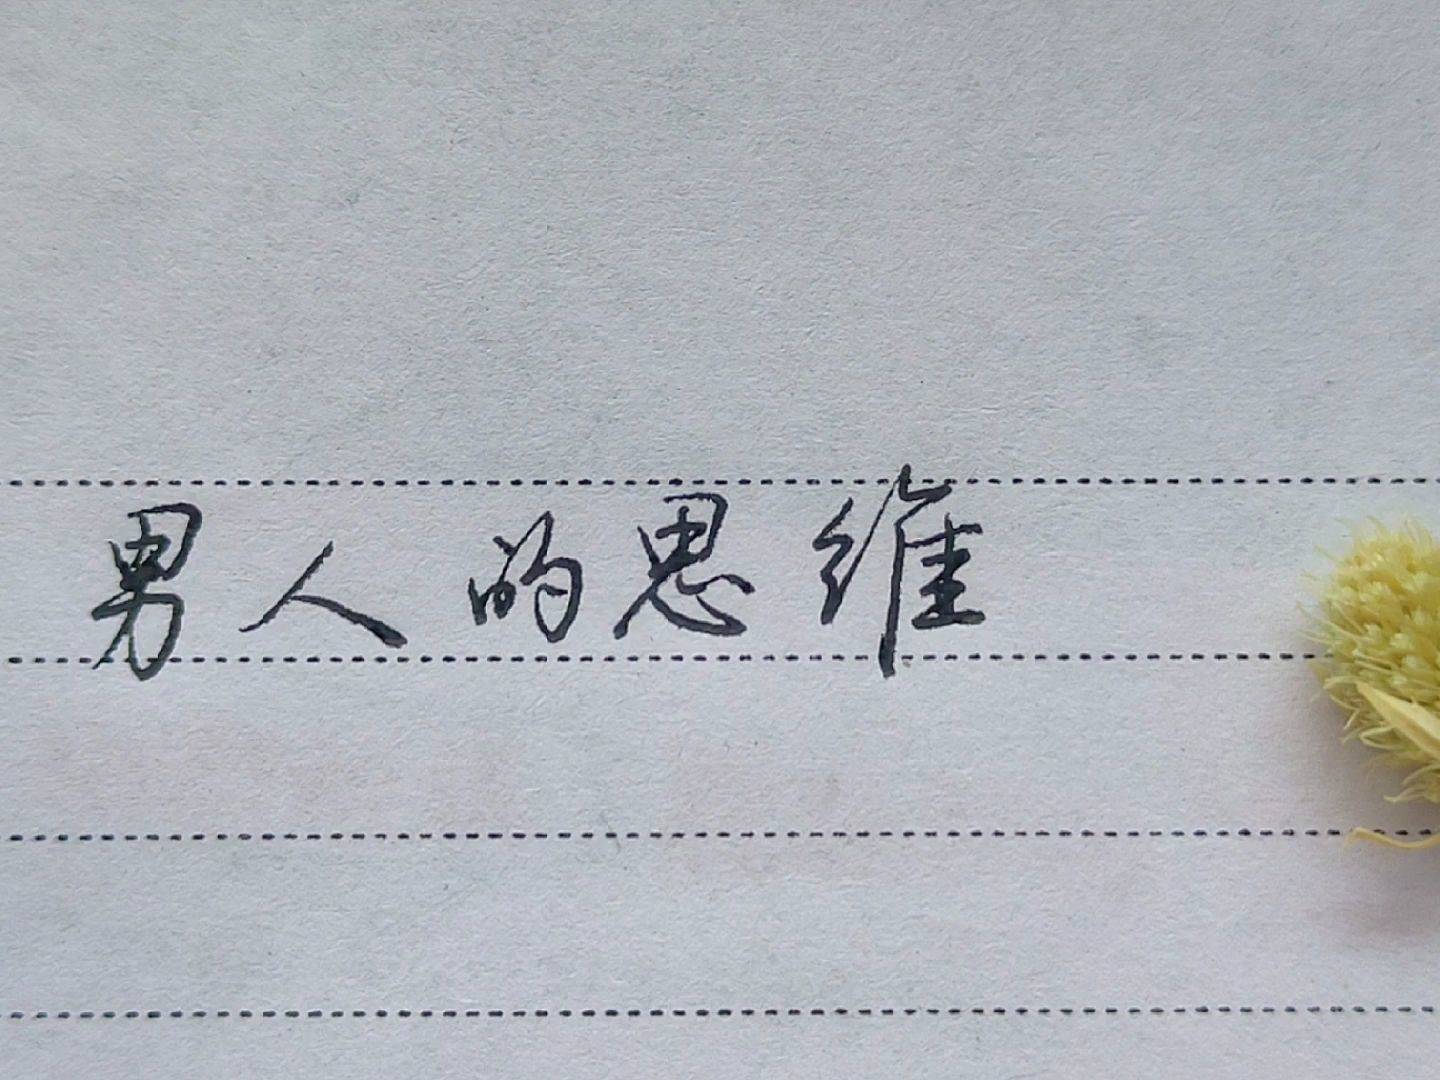 男人的思维